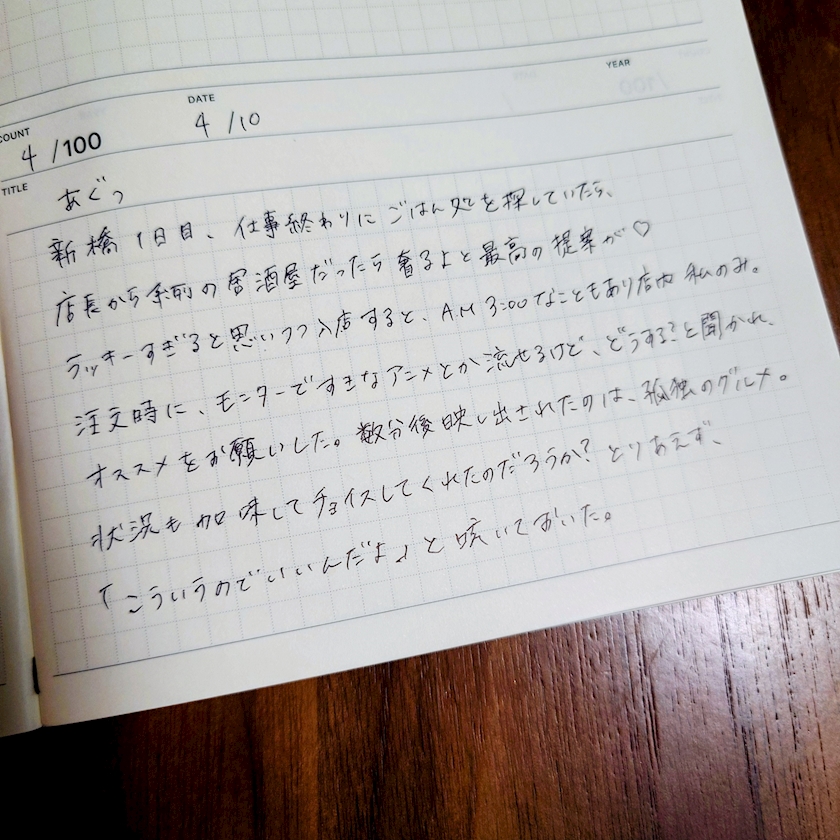 COUNT
4 /100
DATE
4 /10
YEAR
TITLE
あぐっ
新橋1日目、仕事終わりにごはん処を探していたら、
店長から系列の居酒屋だったら奢るよと最高の提案が♡
ラッキーすぎると思いつつ入店すると、A.M 3:00なこともあり店内 私のみ。
注文時に、モニターですきなアニメとか流せるけど、どうする?と聞かれ、
オススメをお願いした。数分後映し出されたのは、孤独のグルメ。
状況も加味してチョイスしてくれたのだろうか?とりあえず、
「こういうのでいいんだよ」と呟いておいた。